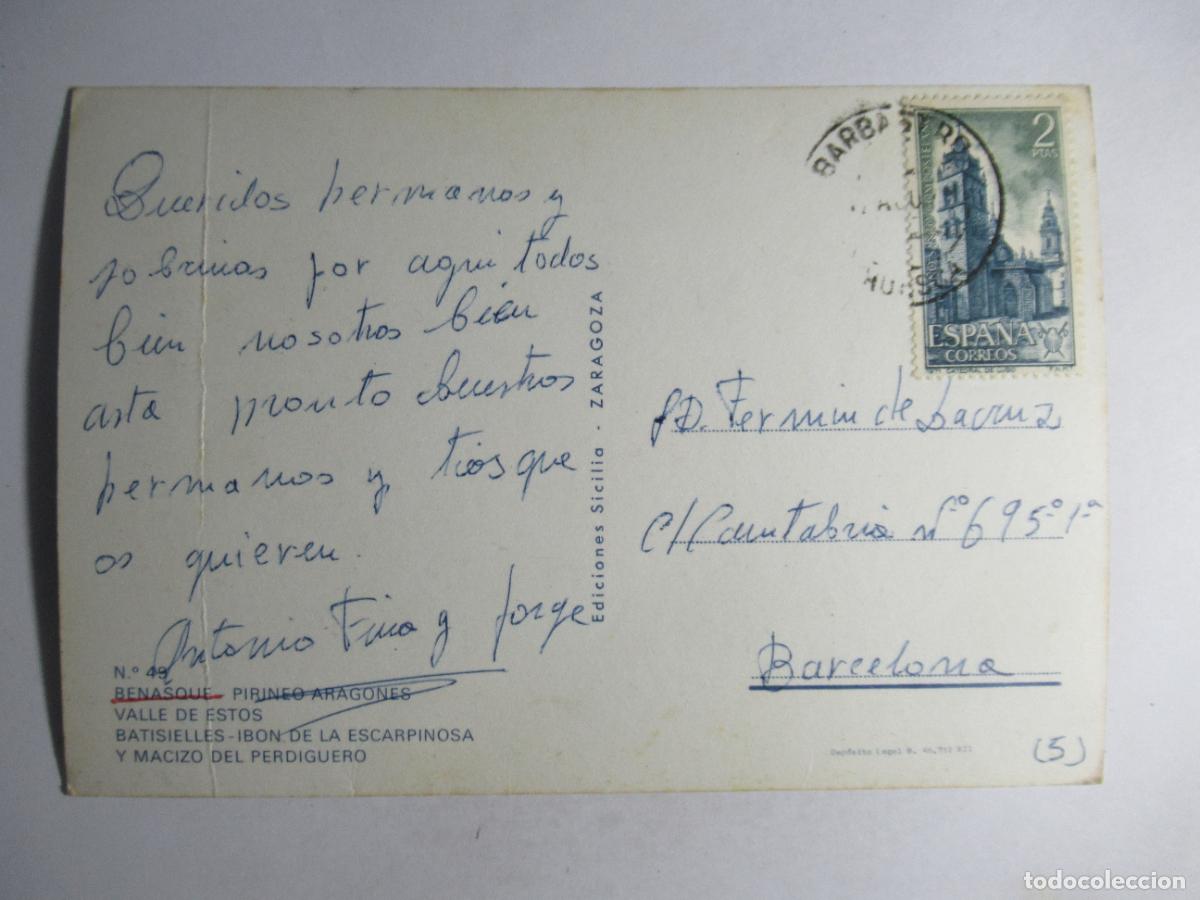 Queridos hermanos y
sobrinas por aqui todos
bien nosotros bien
asta pronto buestros
hermanos y tios que
os quieren.
Antonio Fina y Jorge
N.° 49
BENASQUE - PIRINEO ARAGONES
VALLE DE ESTOS
BATISIELLES - IBON DE LA ESCARPINOSA
Y MACIZO DEL PERDIGUERO
Ediciones Sicilia - ZARAGOZA
BARBASTRO
HUESCA
2
PTAS
ESPAÑA
CORREOS
CATEDRAL DE LUGO
D. Fermin de Lacruz
C/ Cantabria Nº 69 5º 1ª
Barcelona
Depósito Legal B.
(5)
todocoleccion